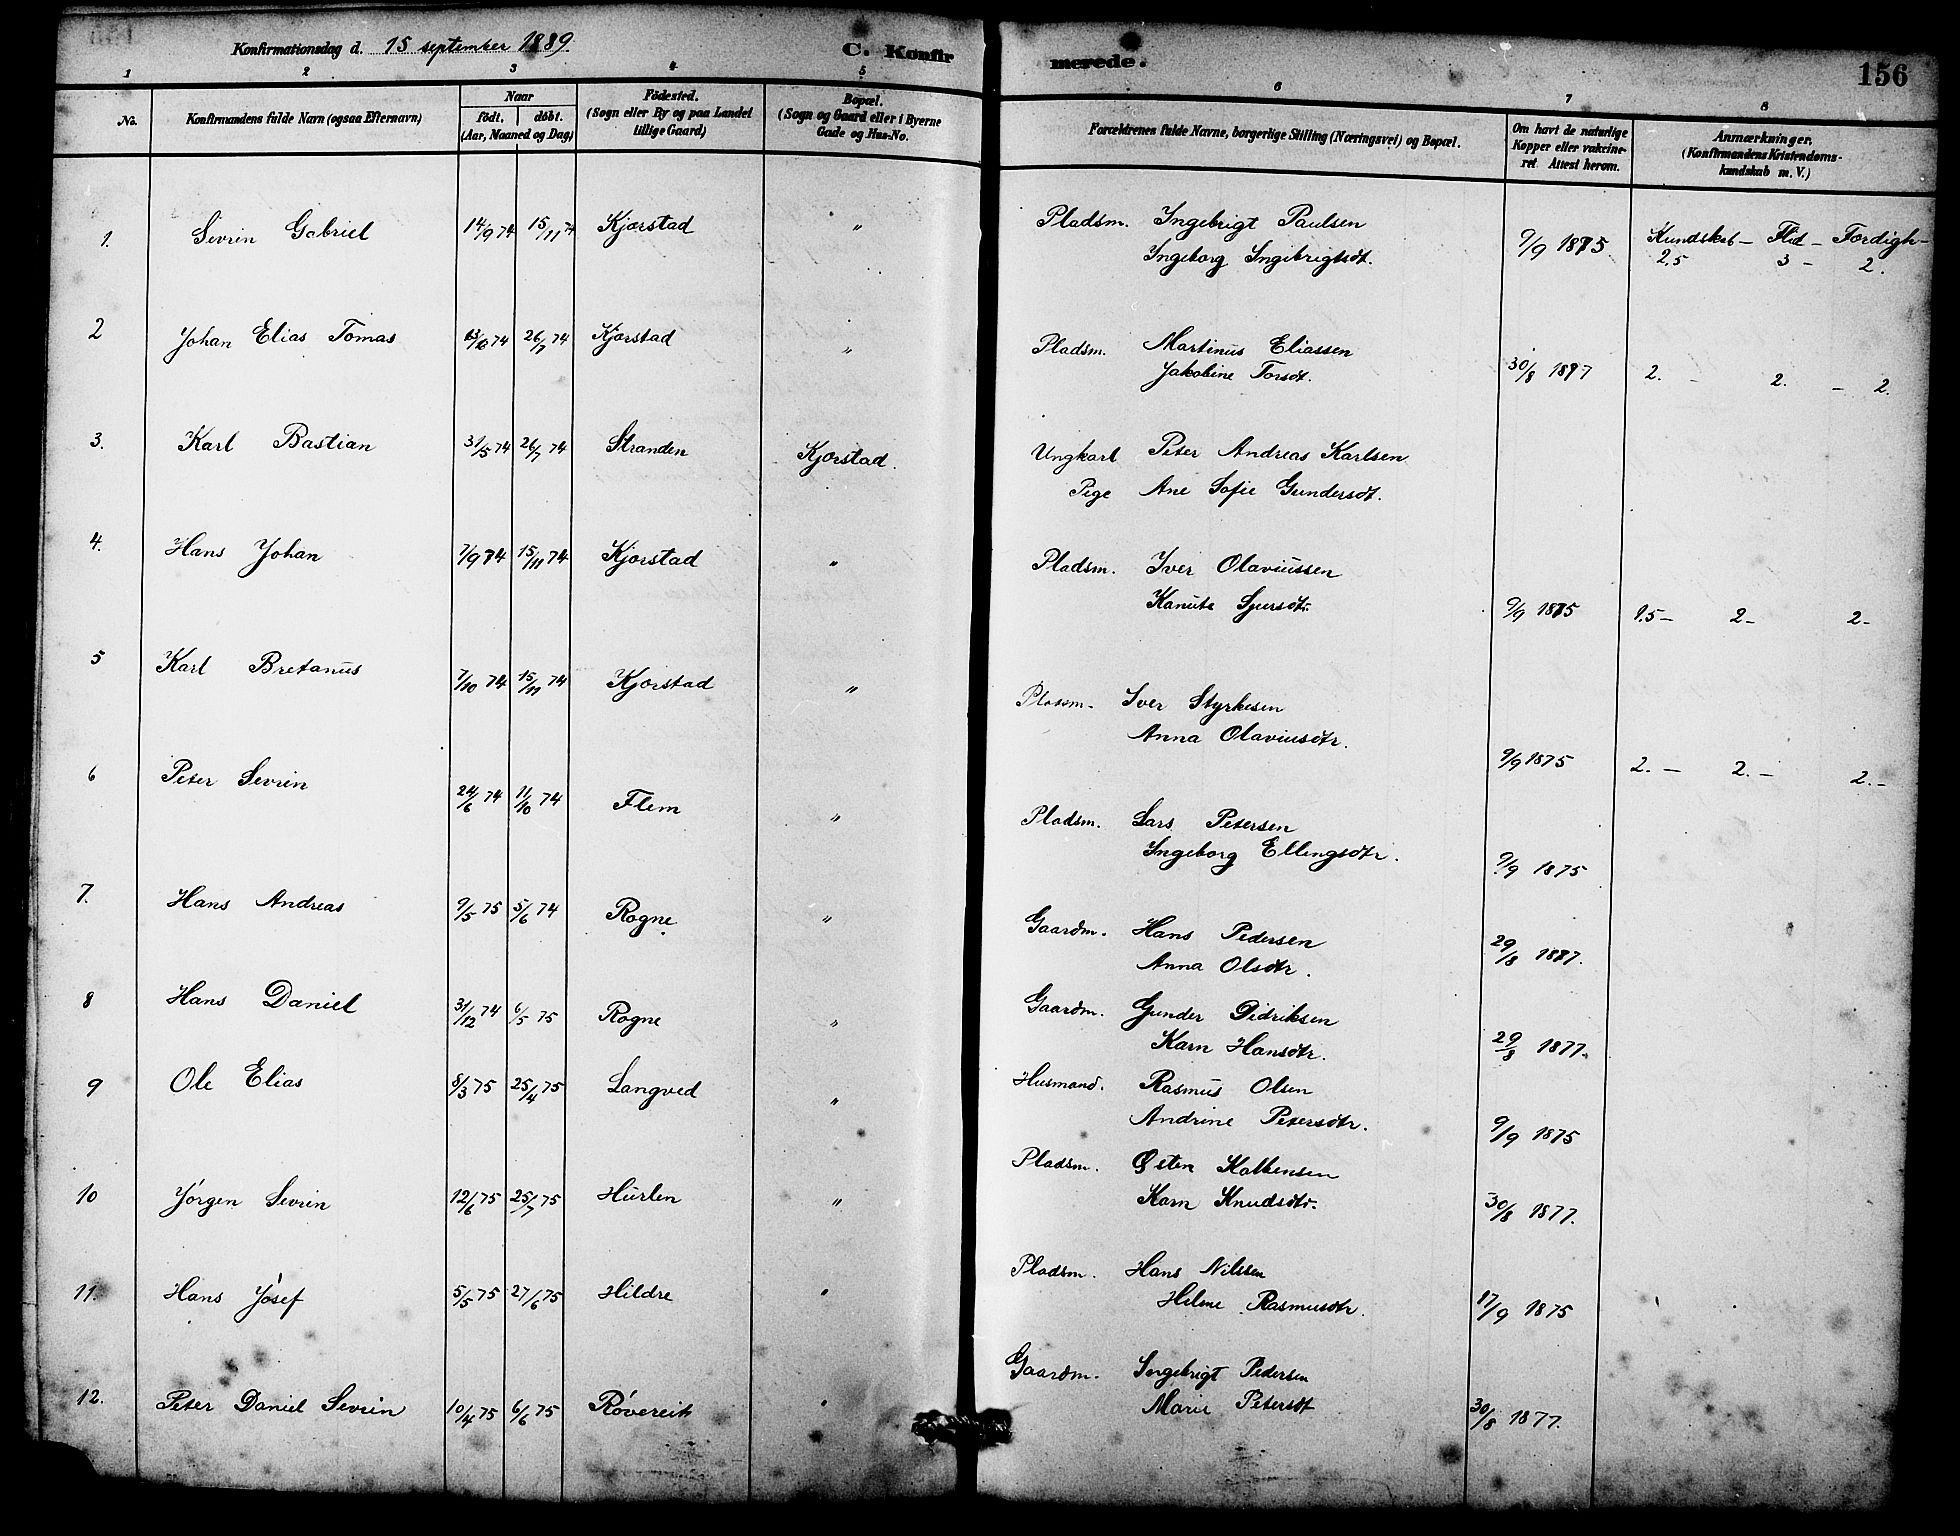 Konfirmationsdag d. 15 september 1889.
C. Konfirmerede.
156
1 2 3 4 5 6 7 8
No. Konfirmandens fulde Navn (ogsaa Efternavn) Naar födt, döbt. (Aar, Maaned og Dag) Födested. (Sogn eller By og paa Landet tillige Gaard) Bopæl. (Sogn og Gaard eller i Byerne Gade og Hus-No. Forældrenes fulde Navne, borgerlige Stilling (Næringsvei) og Bopæl. Om havt de naturlige Kopper eller vakcineret Attest herom. Anmærkninger. (Konfirmandens Kristendomskundskab m. V.)
1. Sevrin Gabriel 14/9 74 15/11 74 Kjørstad " Pladsm. Ingebrigt Paulsen 9/9 1875. Kundskab - Flid - Færdigh-
Ingeborg Ingebrigtsdt. 2,5 3 - 2.
2 Johan Elias Tomas 26/7 74 Kjørstad " Pladsm. Martinus Eliassen
Jakobine Torsdt. 30/8 1877 2. - 2. - 2.
3. Karl Bastian 31/5 74 26/7 74 Stranden Kjørstad. Ungkarl Peter Andreas Karlsen
Pige Ane Sofie Gundersdt.
4. Hans Johan 7/9 74 15/11 74 Kjørstad " Pladsm. Iver Olaviussen
Kanute Sjursdtr. 9/9 1875 1.5 - 2 - 2 -
5 Karl Bretanus 7/10 74 15/11 74 Kjørstad " Pladsm. Iver Styrkesen
Anna Olaviusdtr. 9/9 1875 2. - 2. - 2. -
6 Peter Sevrin 24/6 74 11/10 74 Flem " Pladsm. Lars Petersen
Ingeborg Ellingsdtr. 9/9 1875
7. Hans Andreas 9/5 75 5/6 74 Rogne " Gaardm. Hans Pedersen
Anna Olsdtr. 29/8 1877.
8 Hans Daniel 31/12 74 6/5 75 Rogne " Gaardm. Gunder Didriksen
Karn Hansdtr. 29/8 1877.
9 Ole Elias 8/3 75 25/4 75 Langved " Husmand. Rasmus Olsen
Andrine Petersdtr. 9/9 1875
10 Jørgen Sevrin 12/6 75 25/7 75 Hurlen " Pladsm. Østen
Karn Knudsdtr. 30/8 1877.
11. Hans Josef 5/5 75 27/6 75 Hildre " Pladsm. Hans Nilssen
Hilme Rasmusdtr. 17/9 1875
12. Peter Daniel Sevrin 10/4 75 6/6 75 Røvereit " Gaardm. Ingebrigt Pedersen
Marie Petersdt 30/8 1877.